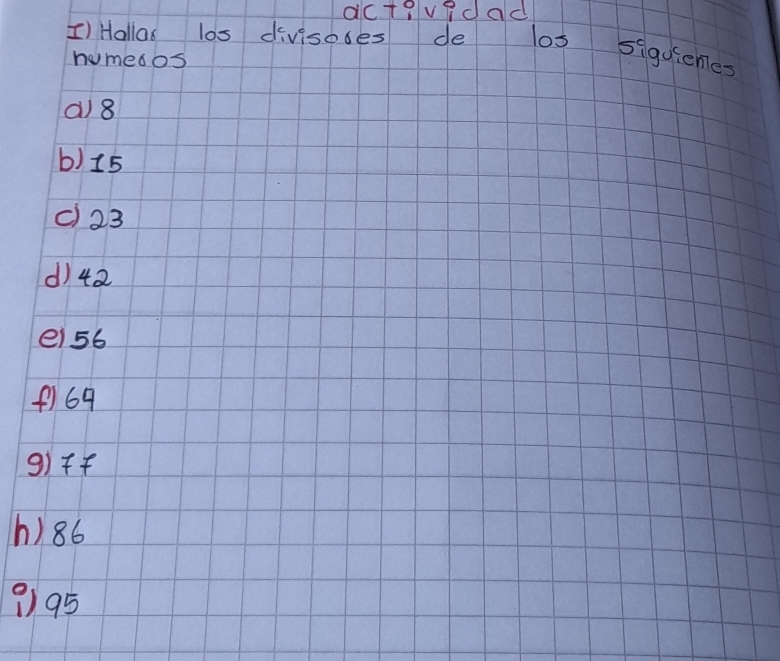 actividad
I) Hallar los divisores de los siguientes
numeros
a) 8
b) 15
c) 23
d) 42
e) 56
f) 69
g) 77
h) 86
i) 95